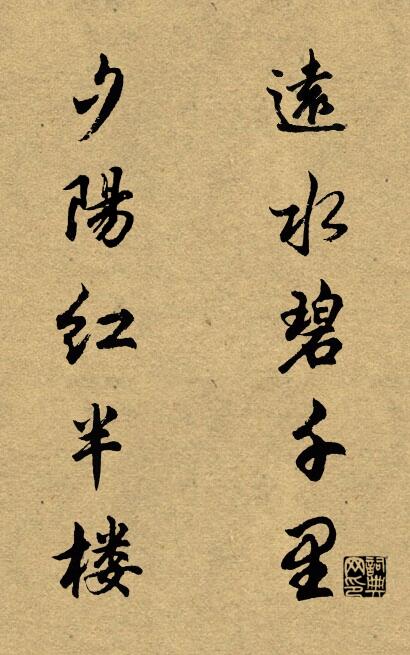 遠水碧千里
夕陽红半楼
詞典网印